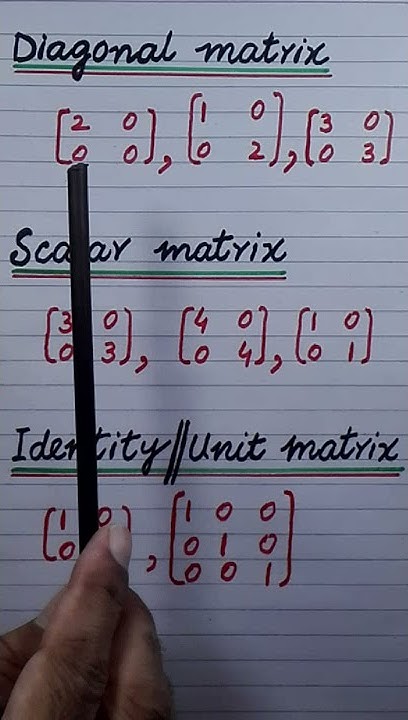 Diagonal matrix
[2 0
0 0], [1 0
0 2], [3 0
0 3]
Scalar matrix
[3 0
0 3], [4 0
0 4], [1 0
0 1]
Identity//Unit matrix
[1 0
0 ], [1 0 0
0 1 0
0 0 1]